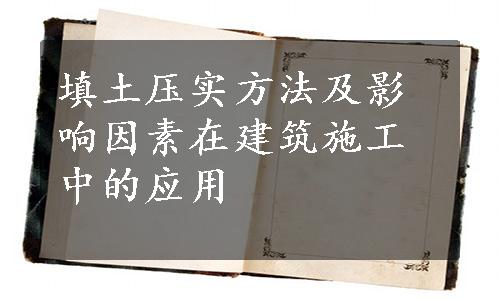 填土压实方法及影
响因素在建筑施工
中的应用